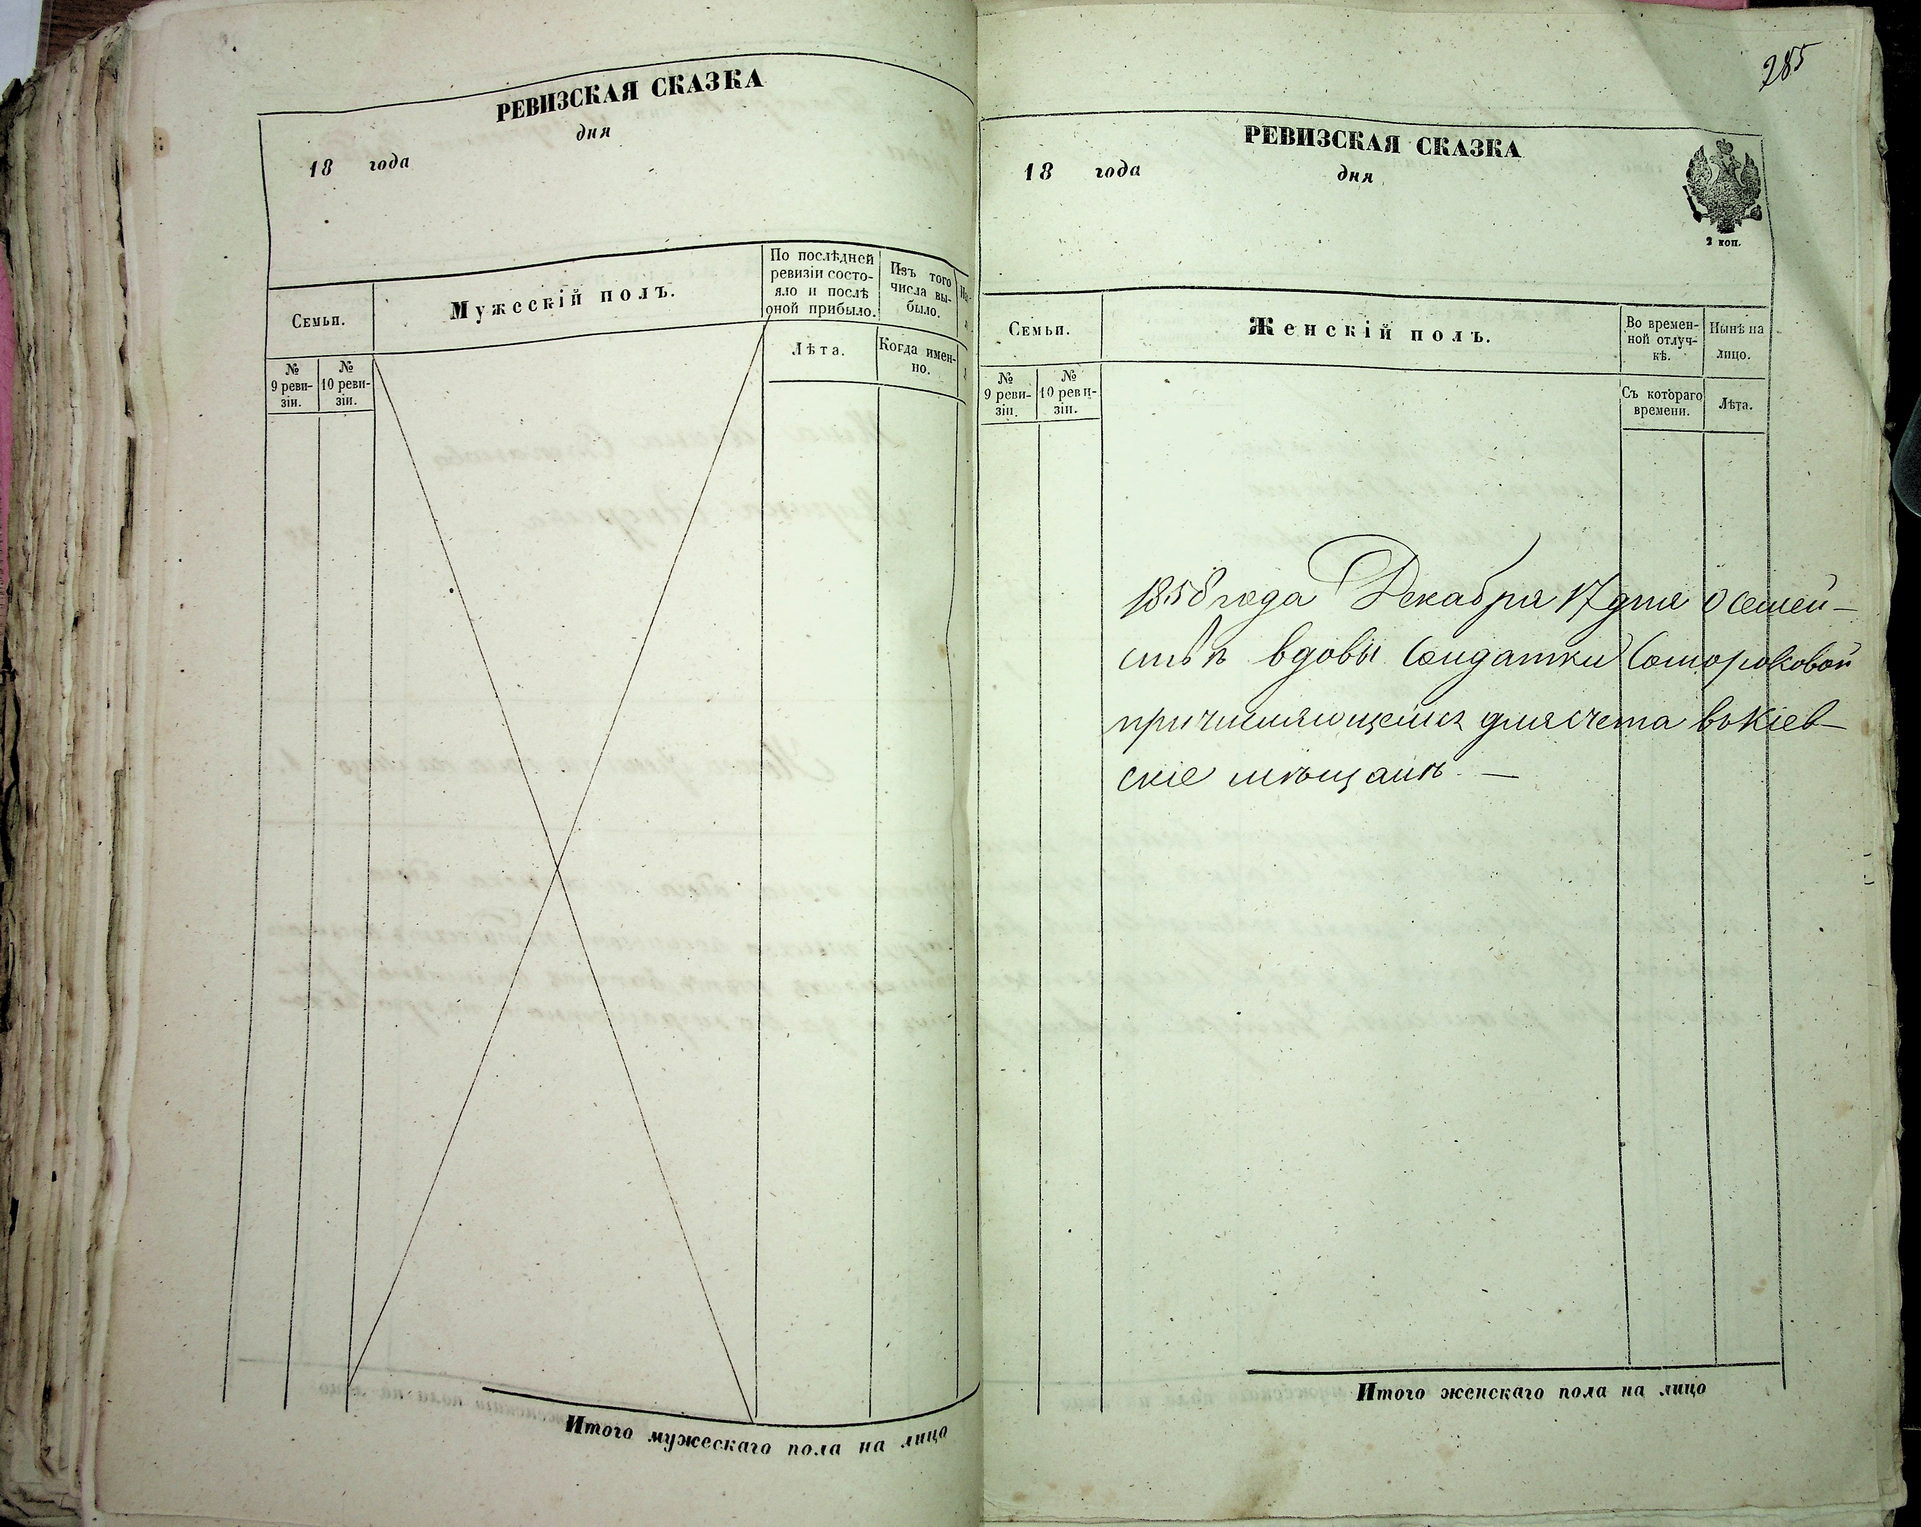 РЕВИЗСКАЯ СКАЗКА
дня
18 года
Семьи.
Мужескій полъ.
По послѣдней
ревизіи состо-
яло и послѣ
оной прибыло.
Изъ того
числа вы-
было.
Лѣта.
Когда имен-
но.
№
9 реви-
зіи.
№
10 реви-
зіи.
Итого мужескаго пола на лицо
285
РЕВИЗСКАЯ СКАЗКА
18 года
дня
2 коп.
Семьи.
Женскій полъ.
Во времен-
ной отлуч-
кѣ.
Нынѣ на
лицо.
№
9 реви-
зіи.
№
10 реви-
зіи.
Съ котораго
времени.
Лѣта.
1858 года Декабря 17 дня О семей-
ствѣ вдовы Солдатки
причисляющемся для счета въ Кіев-
скіе мѣщане. —
Итого женскаго пола на лицо